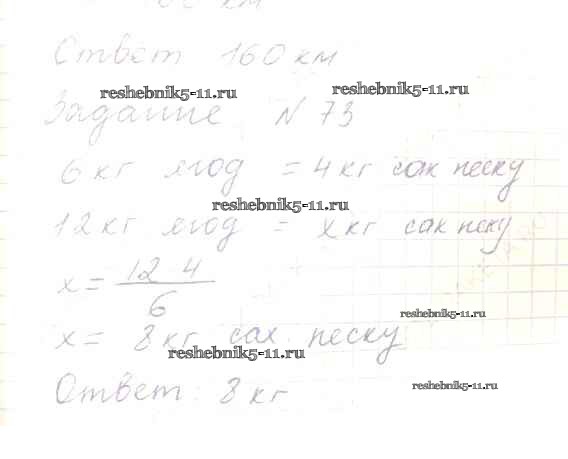 Ответ 160 км
reshebnik5-11.ru
reshebnik5-11.ru
Задание N 73
6 кг ягод = 4 кг сах песку
reshebnik5-11.ru
12 кг ягод = x кг сах пеку
x = 12 4
6
reshebnik5-11.ru
x = 8 кг сах песку
reshebnik5-11.ru
Ответ: 8 кг
reshebnik5-11.ru